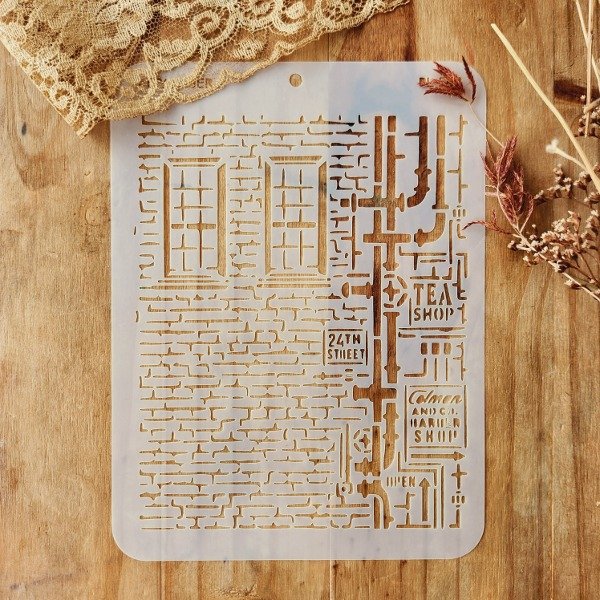 TEA
SHOP
24TH
STREET
Colmen
AND C.I.
BARBER
SHOP
OPEN